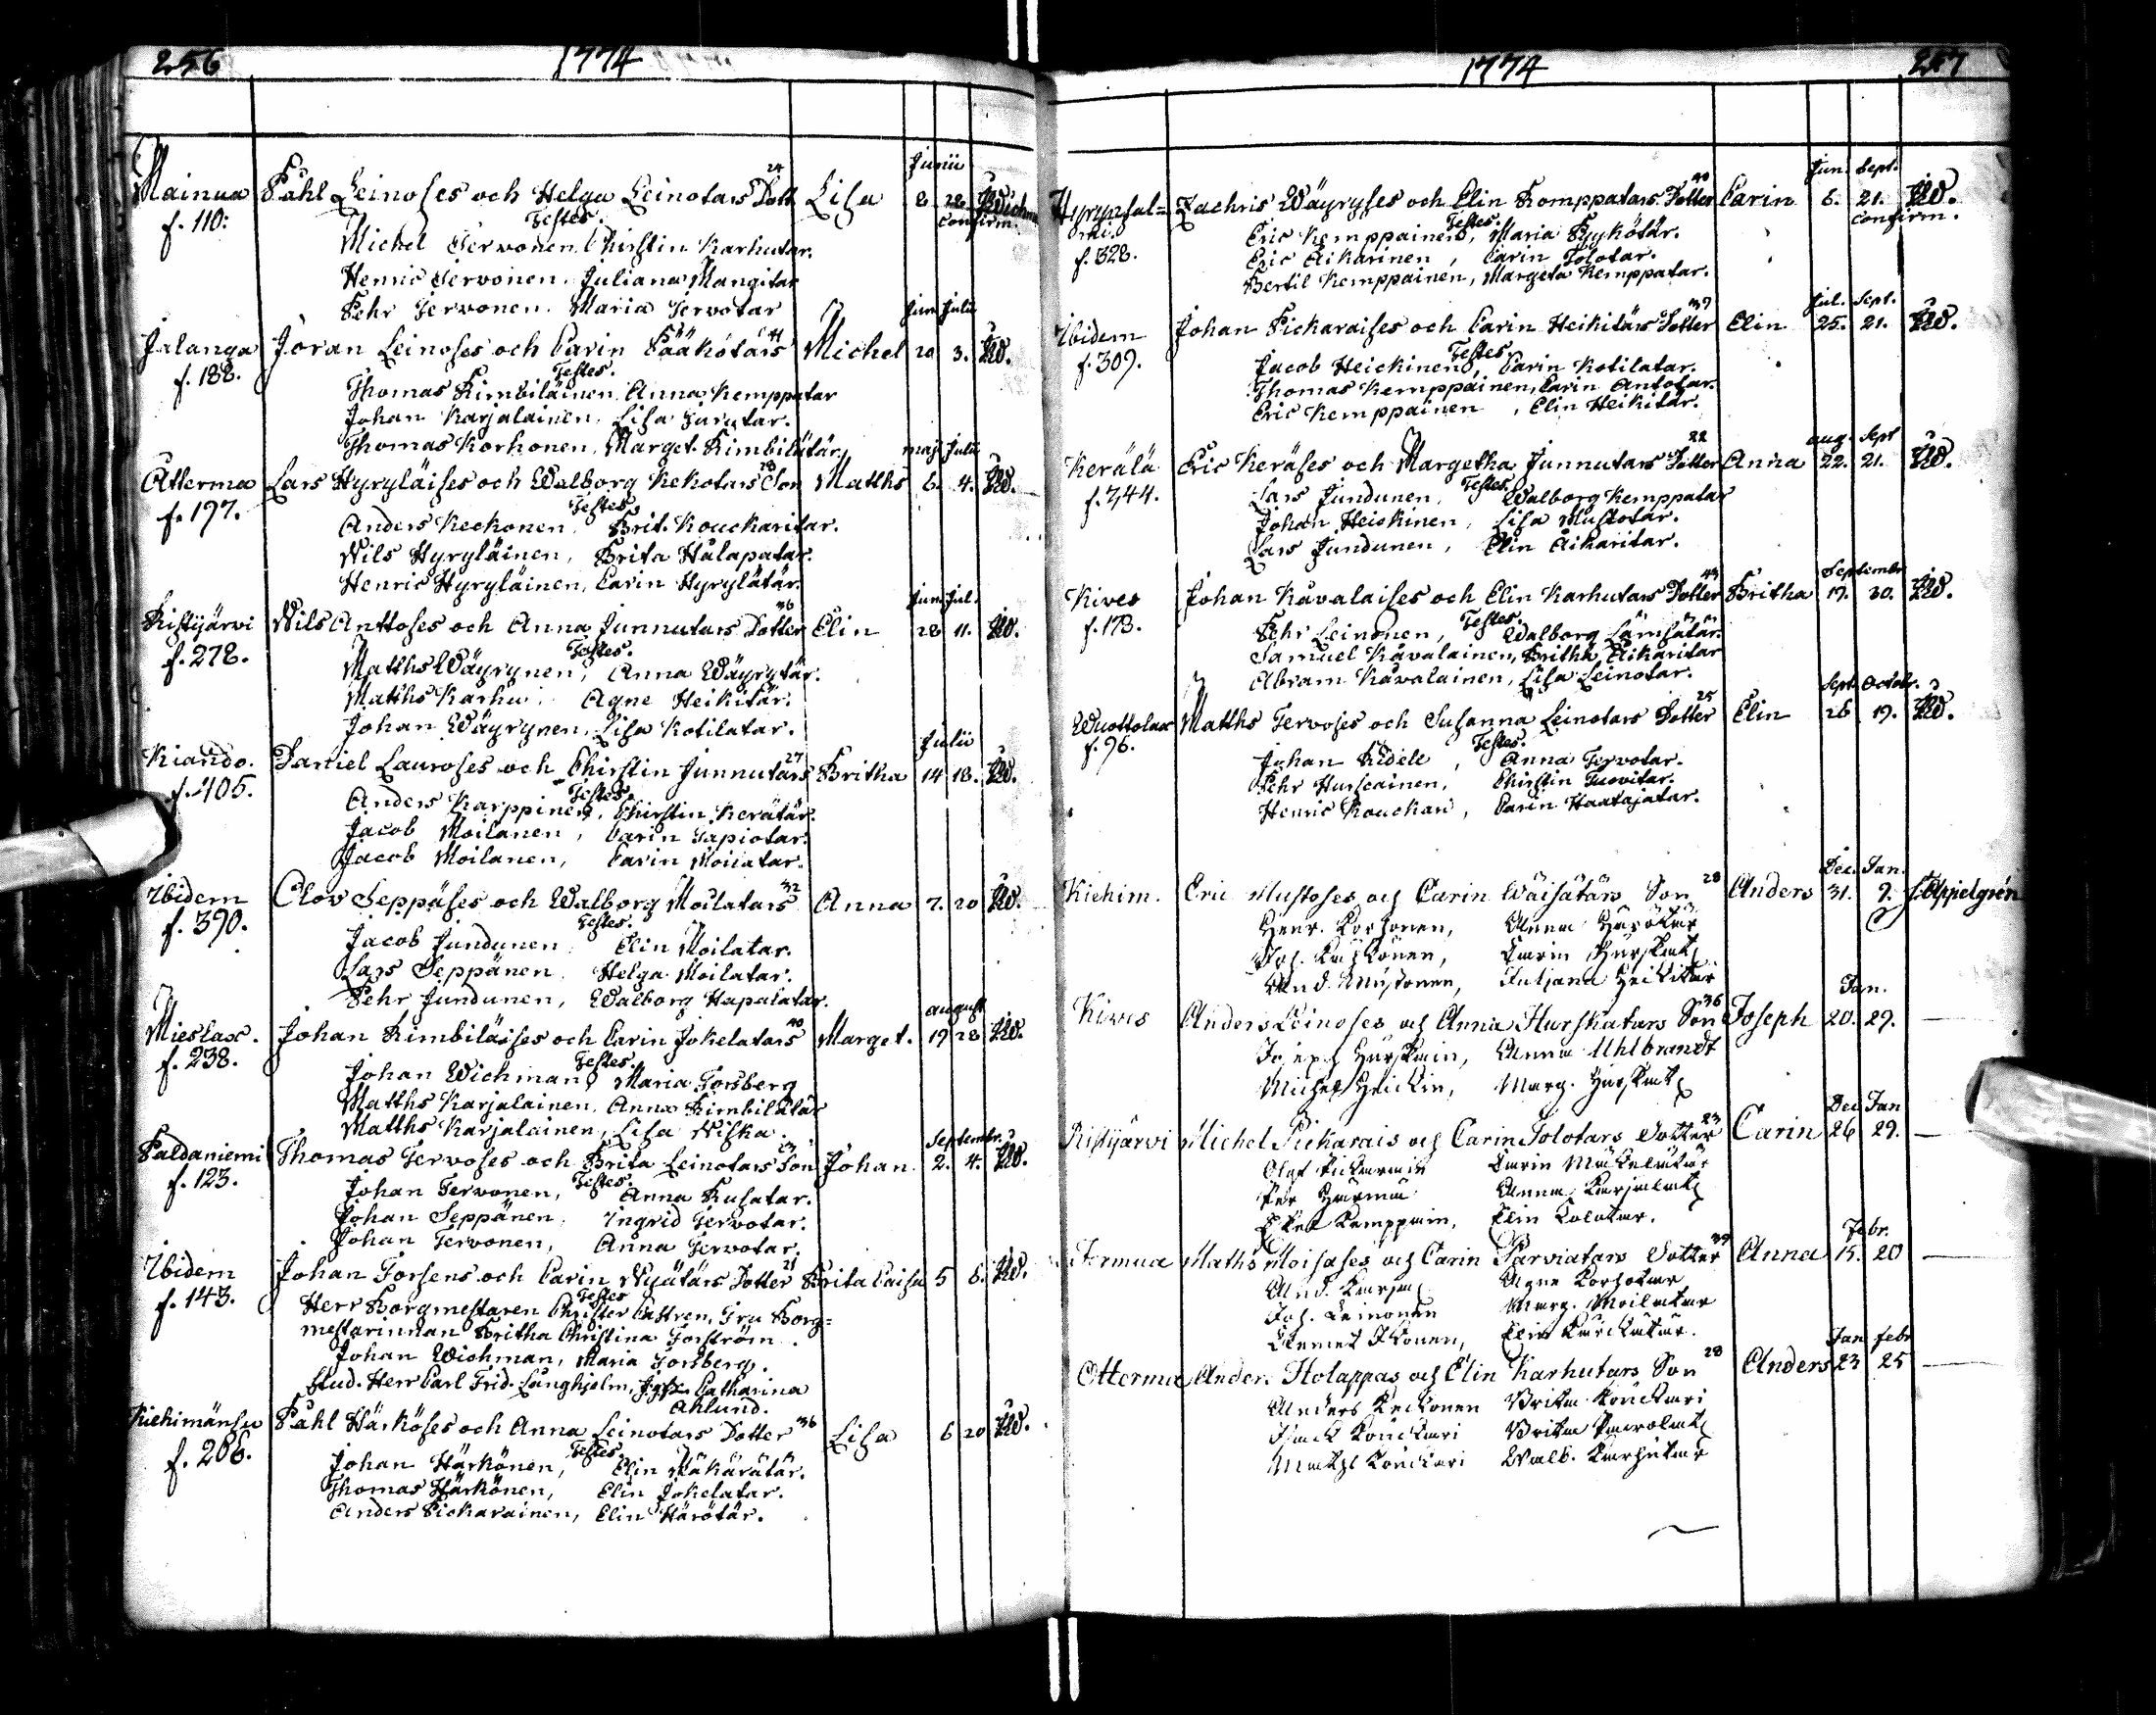 256 1774
Junii
Mainua Påhl Leinoses och Helga Leinotars Dott 24 Lisa 8 28 Wichm
f. 110: Testes. confirm.
Michel Tervonen, Chirstin Karhutar.
Henric Tervonen, Juliana Mangitar
Pehr Tervonen. Maria Tervotar
Jun. Julii
Jalanga Jöran Leinoses och Carin Pääkötars 41 Michel 20 3. Id.
f. 188. Testes.
Thomas Kimbiläinen Anna Kemppatar
Johan Karjalainen, Lisa
Thomas Korhonen, Marget. Kimbilätär,
maji Julii
Atterma Lars Hyryläises och Walborg Kekotars Son 28 Matths 6. 4. Id.
f. 197. Testes
Anders Keckonen, Brit. Kouckaritar.
Nils Hyryläinen, Brita Halapatar.
Henric Hyryläinen, Carin Hyrylätär.
Jun. Jul.
Ristijärvi Nils Anttoses och Anna Junnutars Dotter 36 Elin 28 11. Id.
f. 278. Testes.
Matths Wäyrynen, Anna Wäyrytär.
Matths Karhu, Agne Heikitär.
Johan Wäyrynen, Lisa Kotilatar.
Julii
Kiando. Daniel Lauroses och Chirstin Junnutars 27 Britha 14 18. Id.
f. 405. Testes
Anders Karppinen, Chirstin Kerätär.
Jacob Moilanen, Carin Tapiotar.
Jacob Moilanen, Carin Moilatar.
Ibidem Olov Seppäses och Walborg Moilatars 32 Anna 7. 20 Id.
f. 390. Testes.
Jacob Jundunen Elin Moilatar.
Lars Seppänen, Helga Moilatar.
Pehr Jundunen, Walborg Hapalatar.
august
Mieslax. Johan Kimbiläises och Carin Jokelatars 40 Marget. 19 28 Id.
f. 238. Testes.
Johan Wichman, Maria Forsberg
Matths Karjalainen, Anna Kimbilätär
Matths Karjalainen, Lisa Niska.
Septembr.
Paldaniemi Thomas Tervoses och Brita Leinotars Son Johan 2. 4. Id.
f. 123. Testes.
Johan Tervonen, Anna Kusatar.
Johan Seppänen, Ingrid Tervotar.
Johan Tervonen, Anna Tervotar.
Ibidem Johan Forsens och Carin Nyätärs Dotter 21 Brita Caisa 5 6. Id.
f. 143. Testes
Herr Borgmestaren Christer Castren, Fru Borg=
mestarinnan Britha Christina Forström.
Johan Wichman, Maria Forsberg.
Stud. Herr Carl Frid. Langhjelm, Catharina
Ahlund.
Kiehimänsu Påhl Härköses och Anna Leinotars Dotter 36 Lisa 6 20 Id.
f. 206. Testes
Johan Härkönen, Elin Mäkärätär.
Thomas Härkönen, Elin Jokelatar.
Anders Pickarainen, Elin Härötär.
1774 257
Jun. Sept.
Hyrynsal= Zachris Wäyryses och Elin Komppatars Dotter 40 Carin 6. 21. Id.
mi. Testes confirm.
f. 328. Eric Kemppainen, Maria Pyykötär.
Eric Aikarinen, Carin Tolotar.
Bertil Kemppainen, Margeta Kemppatar.
Jul. Sept.
Ibidem Johan Pickaraises och Carin Heikitärs Dotter 39 Elin 25. 21. Id.
f. 309. Testes
Jacob Heickinen, Carin Kotilatar.
Thomas Kemppainen, Carin Antotar.
Eric Kemppainen, Elin Heikitär.
aug. Sept
Kerälä Eric Keräses och Margetha Junnutars Dotter 22 Anna 22. 21. Id.
f. 344. Testes.
Lars Jundunen, Walborg Kemppatar
Johan Heickinen, Lisa Mustotar.
Lars Jundunen, Elin Aikaritar.
Septembr
Kives Johan Kåvalaises och Elin Karhutars Dotter 43 Britha 17. 30. Id.
f. 173. Testes.
Pehr Leinonen, Walborg Lämsätär.
Samuel Kåvalainen, Britha Aikaritar
Abram Kåvalainen, Lisa Leinotar.
Sept. Octobr.
Wuottolax Matths Tervoses och Susanna Leinotars Dotter 25 Elin 26 19. Id.
f. 96. Testes.
Johan Kidele, Anna Tervotar.
Pehr Hurscainen, Chirstin Tuovitar.
Henric Kouckari, Carin Haatajatar.
Dec. Jan.
Kiehim. Eric Mustoses och Carin Wäisätärs Son 28 Anders 31. 9. Appelgrén
Henr. Korhonen, Anna
Joh. Carin
And. Mustonen, Juliana Heickitar
Jan.
Kives Anders Leinoses och Anna Hurskatars Son 36 Joseph 20. 29.
Joseph Hurskain, Anna Uhlbrandt
Michel Heickin, Marg. Hurskat
Dec Jan
Ristijärvi Michel Pickarais och Carin Tolotars Dotter 23 Carin 26 29.
Olof Pickarain Carin Mäkelätär
Pehr Anna Karjalat
Kemppain, Elin Tolotar.
Febr.
Jormua Maths Moisases och Carin Parviatars Dotter 39 Anna 15. 20
And. Karjal. Agne Korhotar
Joh. Leinonen Marg. Moilatar
Clemet Elin
Jan febr
Ottermu Anders Holappas och Elin Karhutars Son 28 Anders 23 25
Anders Keckonen Brita Kouckari
Isack Kouckari Brita
Kouckari Walb. Karhutar